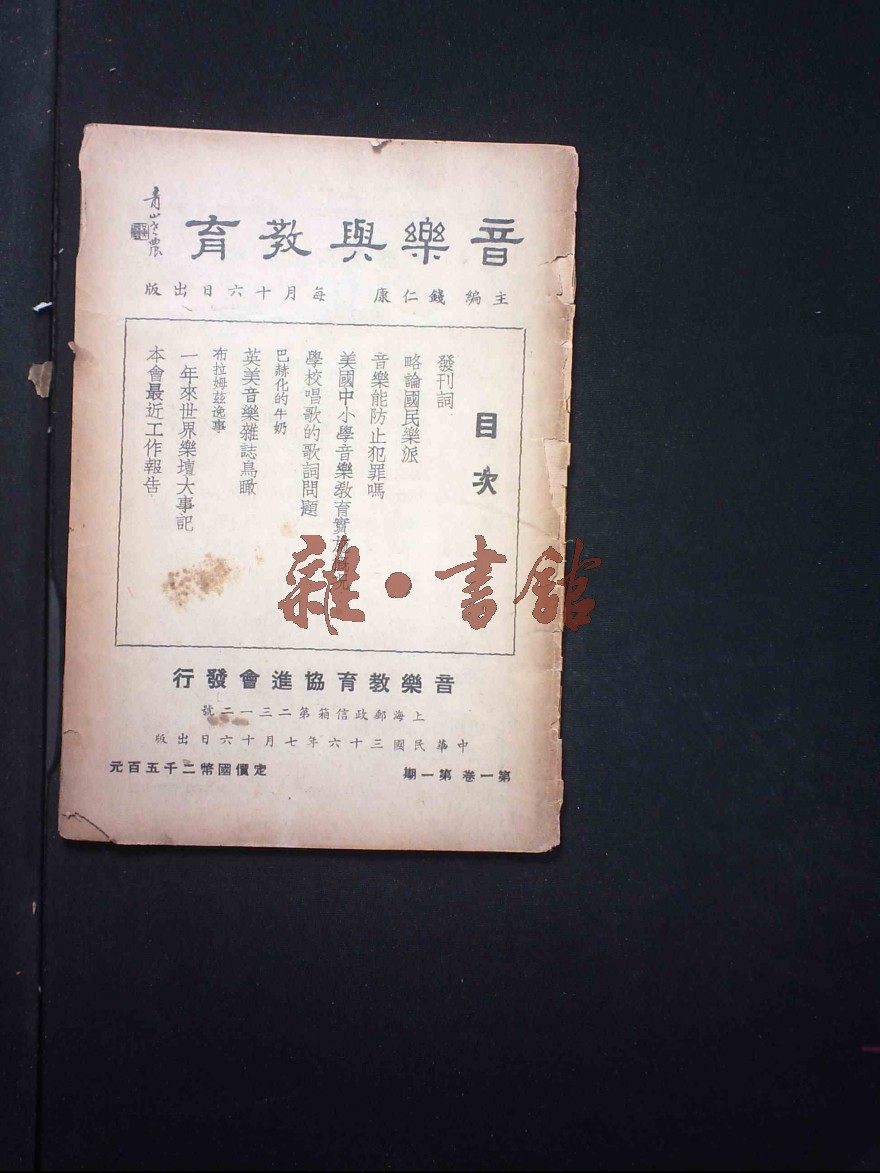 音樂與教育
青山之農
主編 錢仁康 每月十六日出版
目次
發刊詞
略論國民樂派
音樂能防止犯罪嗎
美國中小學音樂教育實施概況
學校唱歌的歌詞問題
巴赫化的牛奶
英美音樂雜誌鳥瞰
布拉姆兹逸事
一年來世界樂壇大事記
本會最近工作報告
雜·書館
音樂教育協進會發行
上海郵政信箱第二三一二號
中華民國三十六年七月十六日出版
第一卷 第一期 定價國幣二千五百元